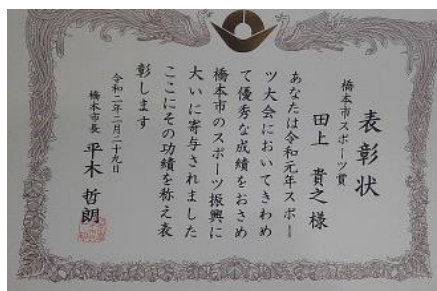 表彰状
橋本市スポーツ賞
田上 貴之 様
あなたは令和元年スポー
ツ大会においてきわめ
て優秀な成績をおさめ
橋本市のスポーツ振興に
大いに寄与されました
ここにその功績を称え表
彰します
令和二年二月二十九日
橋本市長 平木 哲朗